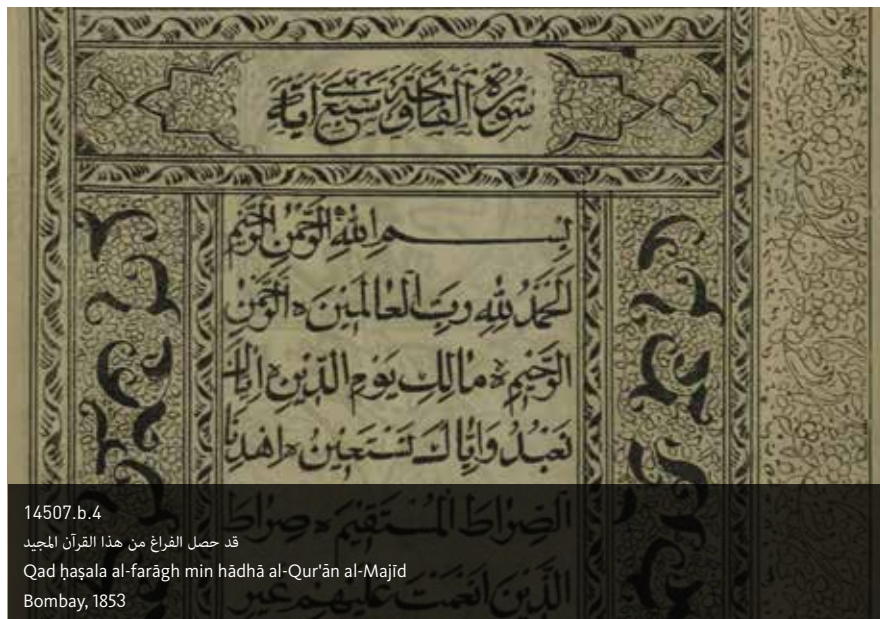 سورة الفاتحة وهي سبع اياة
بسم الله الرحمن الرحيم
الحمد لله رب العالمين ه الرحمن
الرحيم ه مالك يوم الدين ه اياك
نعبد واياك نستعين ه اهدنا
الصراط المستقيم ه صراط
الذين انعمت عليهم غير
14507.b.4
قد حصل الفراغ من هذا القرآن المجيد
Qad ḥaṣala al-farāgh min hādhā al-Qur'ān al-Majīd
Bombay, 1853